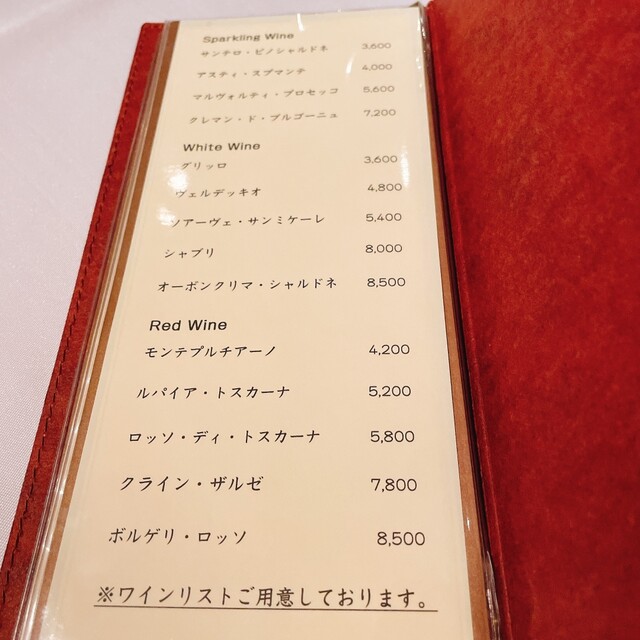 Sparkling Wine
サンテロ・ピノシャルドネ 3,600
アスティ・スプマンテ 4,000
マルヴォルティ・プロセッコ 5,600
クレマン・ド・ブルゴーニュ 7,200
White Wine
グリッロ 3,600
ヴェルデッキオ 4,800
ソアーヴェ・サンミケーレ 5,400
シャブリ 8,000
オーボンクリマ・シャルドネ 8,500
Red Wine
モンテプルチアーノ 4,200
ルパイア・トスカーナ 5,200
ロッソ・ディ・トスカーナ 5,800
クライン・ザルゼ 7,800
ボルゲリ・ロッソ 8,500
※ワインリストご用意しております。